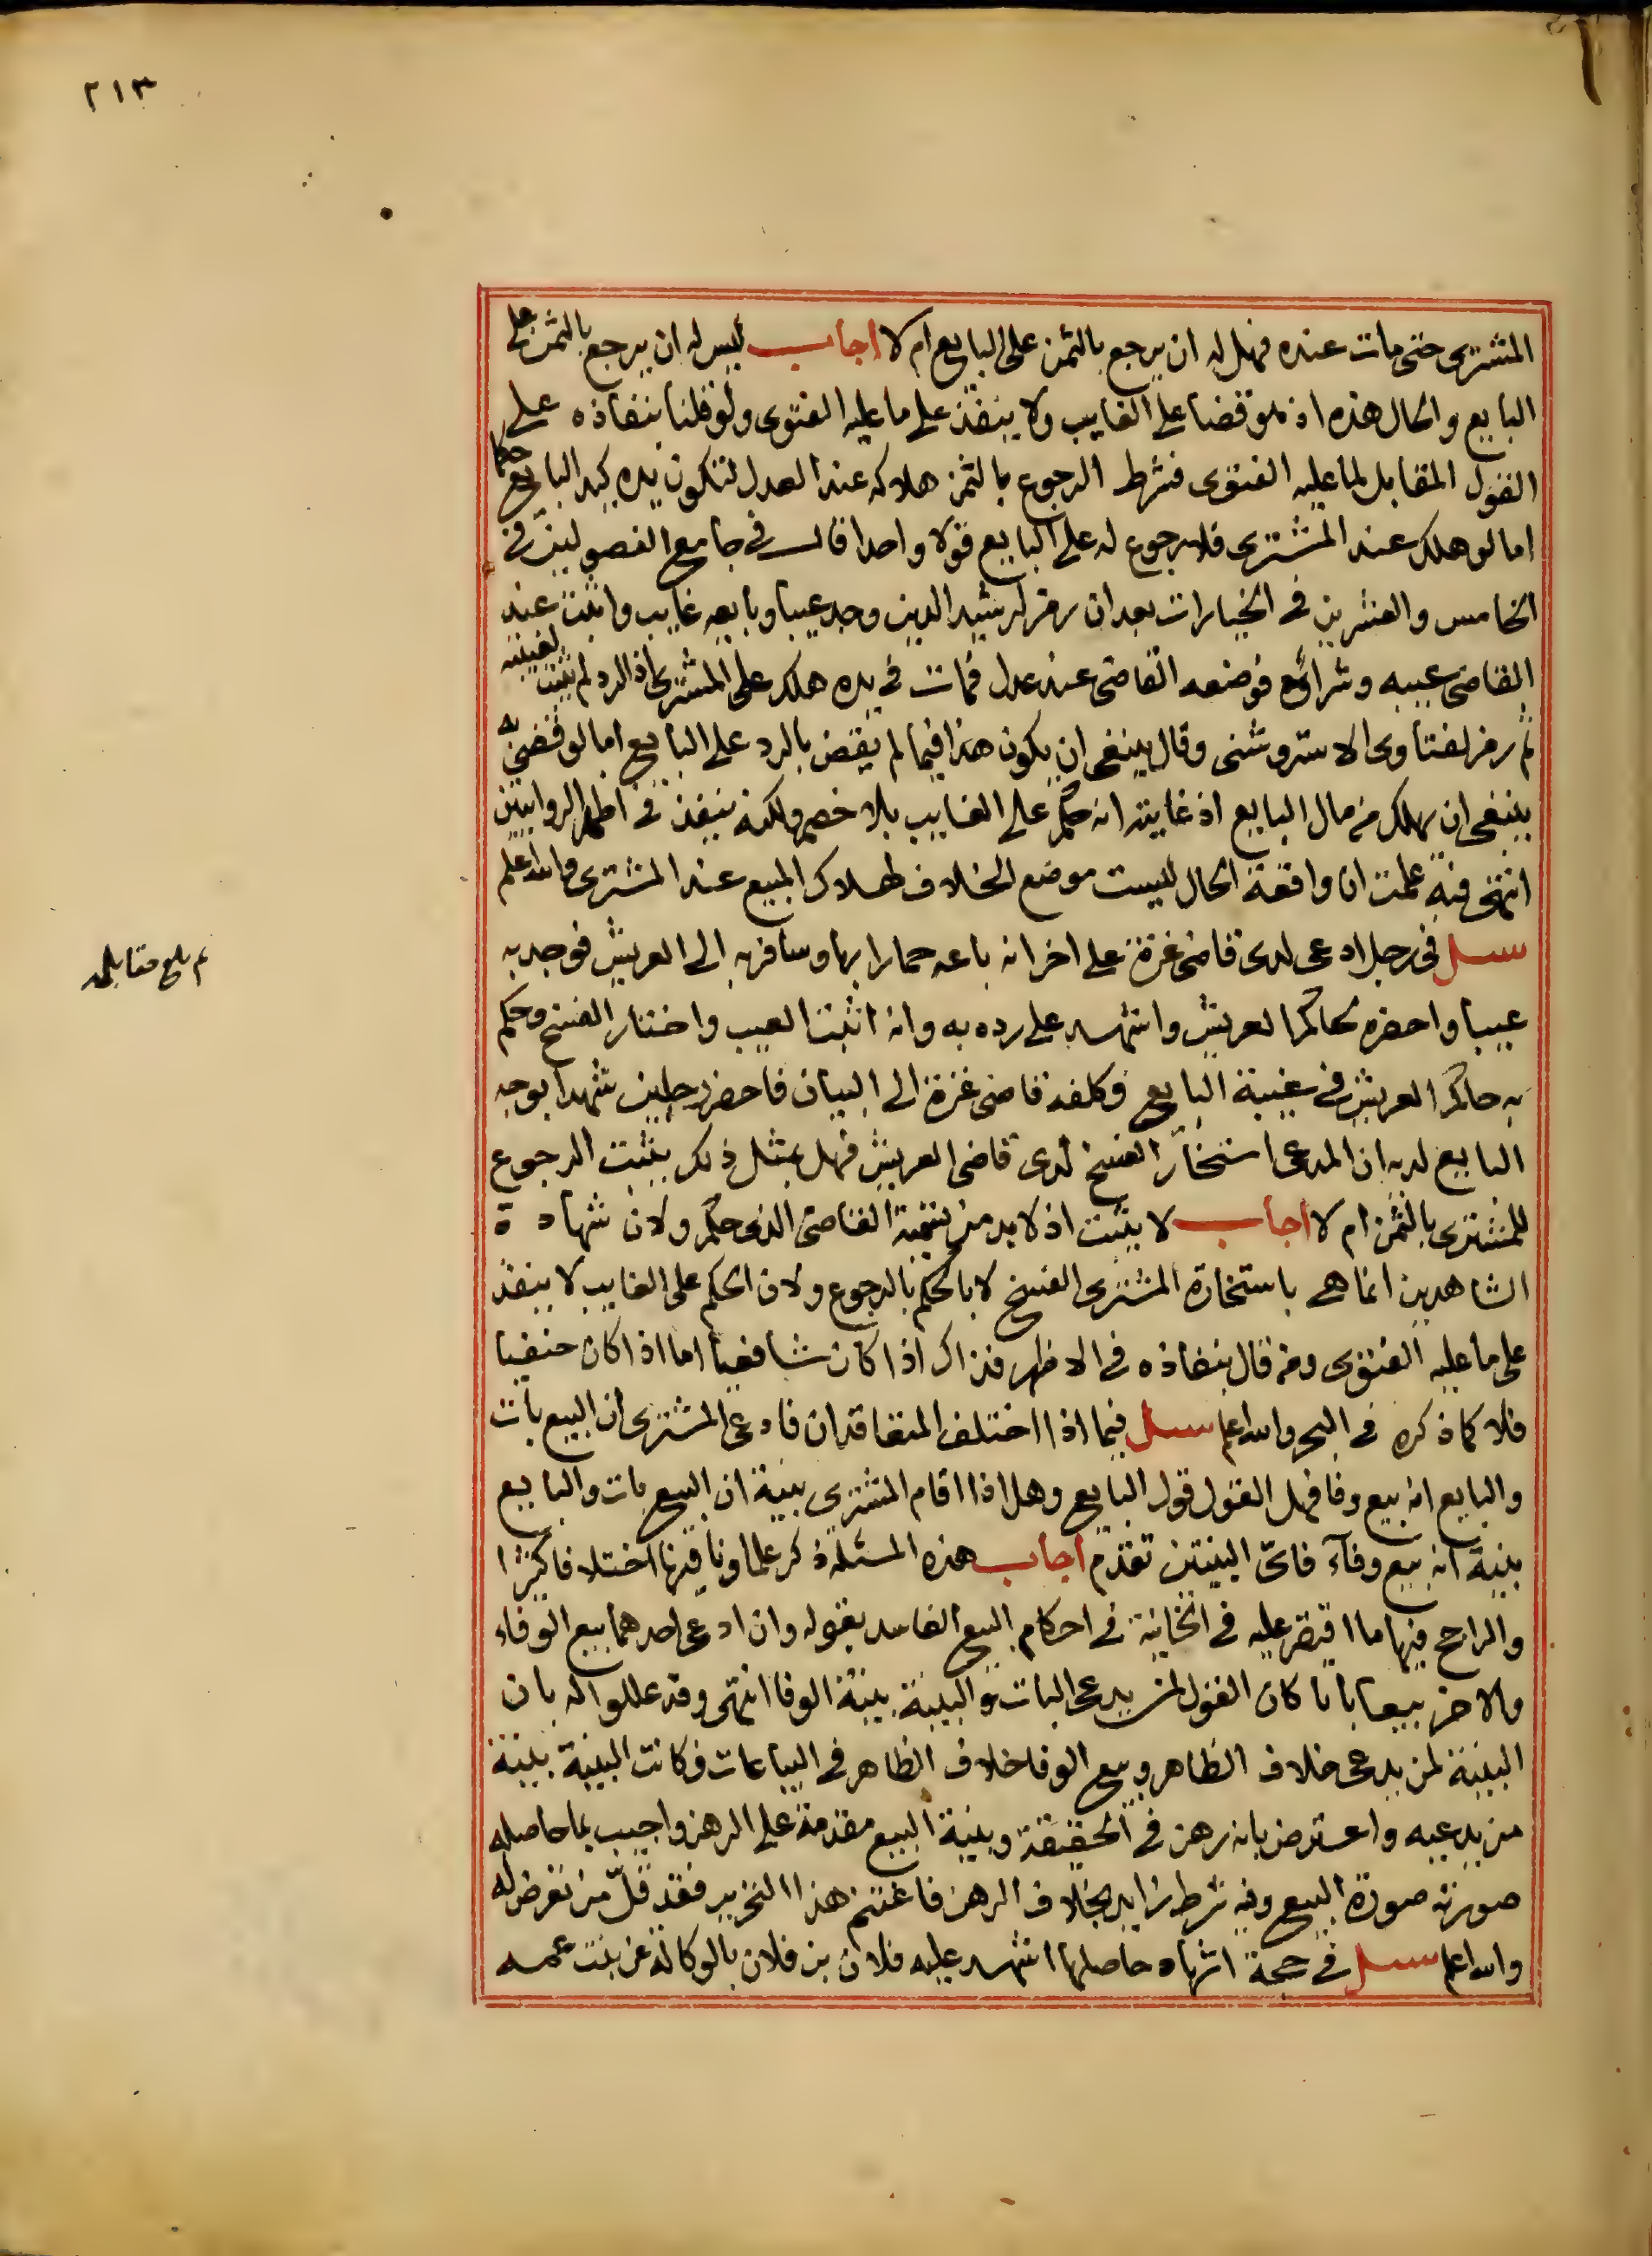 ٢١٣
المشترى حتى مات عنده فهل له ان يرجع بالثمن على البايع ام لا اجاب ليس له ان يرجع بالثمن على
البايع والحال هذه اذ هو قضا على الغايب ولا ينفذ على ما عليه الفتوى ولو قلنا بنفاذه على
القول المقابل لما عليه الفتوى فشرط الرجوع بالثمن هلاكه عند العدل لتكون يده كيد البايع حكما
اما لو هلك عند المشترى فلا رجوع له على البايع قولا واحدا قال في جامع الفصولين في
الخامس والعشرين في الخيارات بعد ان رمز لرشيد الدين وجد عيبا وبايعه غايب واثبت عند
القاضى عيبه وشراؤه فوضعه القاضى عند عدل فمات في يده هلك على المشترى اذ الرد لم يثبت لغيبته
ثم رمز لفتاوى الاستروشنى وقال ينبغى ان يكون هذا فيما لم يقض بالرد على البايع اما لو قضى به
ينبغى ان يهلك من مال البايع اذ غايته انه حكم على الغايب بلا خصم ولكنه ينفذ في اظهر الروايتين
انتهى فبه علمت ان واقعة الحال ليست موضع الخلاف لهلاك المبيع عند المشترى والله اعلم
سئل في رجل ادعى لدى قاضى غزة على اخر انه باعه حمارا بها وسافر به الى العريش فوجد به
عيبا واحضره لحاكم العريش واشهد على رده به وانه اثبت العيب واختار الفسخ وحكم
به حاكم العريش في غيبة البايع فكلفه قاضى غزة الى البيان فاحضر رجلين شهدا بوجه
البايع لديه ان المدعى استخار الفسخ لدى قاضى العريش فهل بمثل ذلك يثبت الرجوع
للمشترى بالثمن ام لا اجاب لا يثبت اذ لا بد من تسمية القاضى الذى حكم ولان شهادة
الشاهدين انما هى باستخارة المشترى الفسخ لا بالحكم بالرجوع ولان الحكم على الغايب لا ينفذ
على ما عليه الفتوى ومن قال بنفاذه في الاظهر فذاك اذا كان شافعيا اما اذا كان حنفيا
فلا كما ذكره في البحر والله اعلم سئل فيما اذا اختلف المتعاقدان فادعى المشترى ان البيع بات
والبايع انه بيع وفا فهل القول قول البايع وهل اذا اقام المشترى بينة ان البيع بات والبايع
بينة انه بيع وفآء فاىّ البينتين تقدم اجاب هذه المسئلة ذكر علماونا فيها اختلافا كثيرا
والراجح فيها ما اقتصر عليه في الخانية في احكام البيع الفاسد بقوله وان ادعى احدهما بيع الوفاء
والاخر بيعا باتا كان القول لمن يدعى البات والبينة بينة الوفا انتهى وقد عللوا له بان
البينة لمن يدعى خلاف الظاهر وبيع الوفا خلاف الظاهر في البياعات فكانت البينة بينة
من يدعيه واعترض بانه رهن في الحقيقة وبينة البيع مقدمة على الرهن واجيب بما حاصله
صورته صورة البيع وفيه شرط زايد بخلاف الرهن فاغتنم هذا التحرير فقد قلّ من تعرض له
والله اعلم سئل في حجة اشهاد حاصلها اشهد عليه فلان بن فلان بالوكالة عن بنت عمه
بلغ مقابله